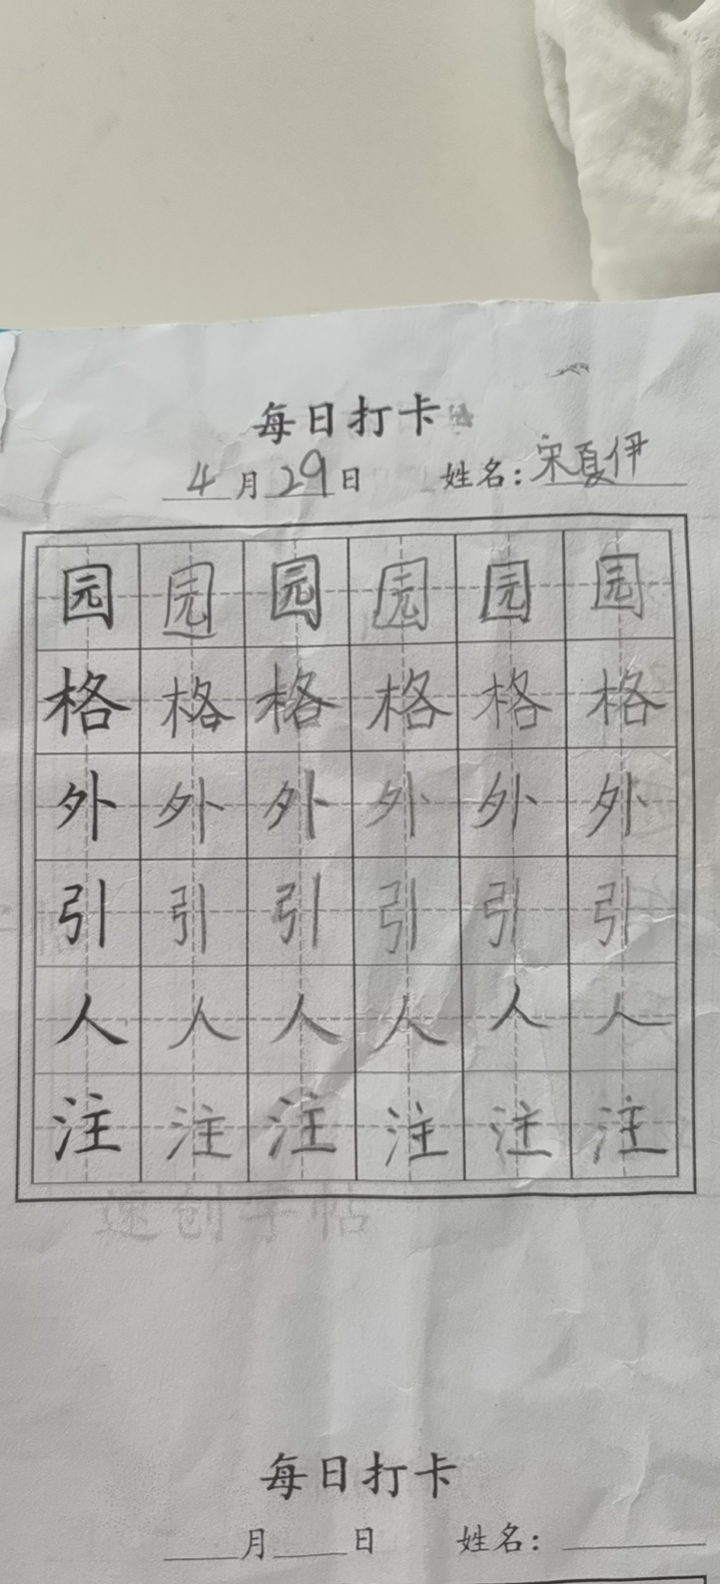 每日打卡
4月29日 姓名：宋夏伊
园园园园园园
格格格格格格
外外外外外外
引引引引引引
人人人人人人
注注注注注注
速创字帖
每日打卡
月 日 姓名：